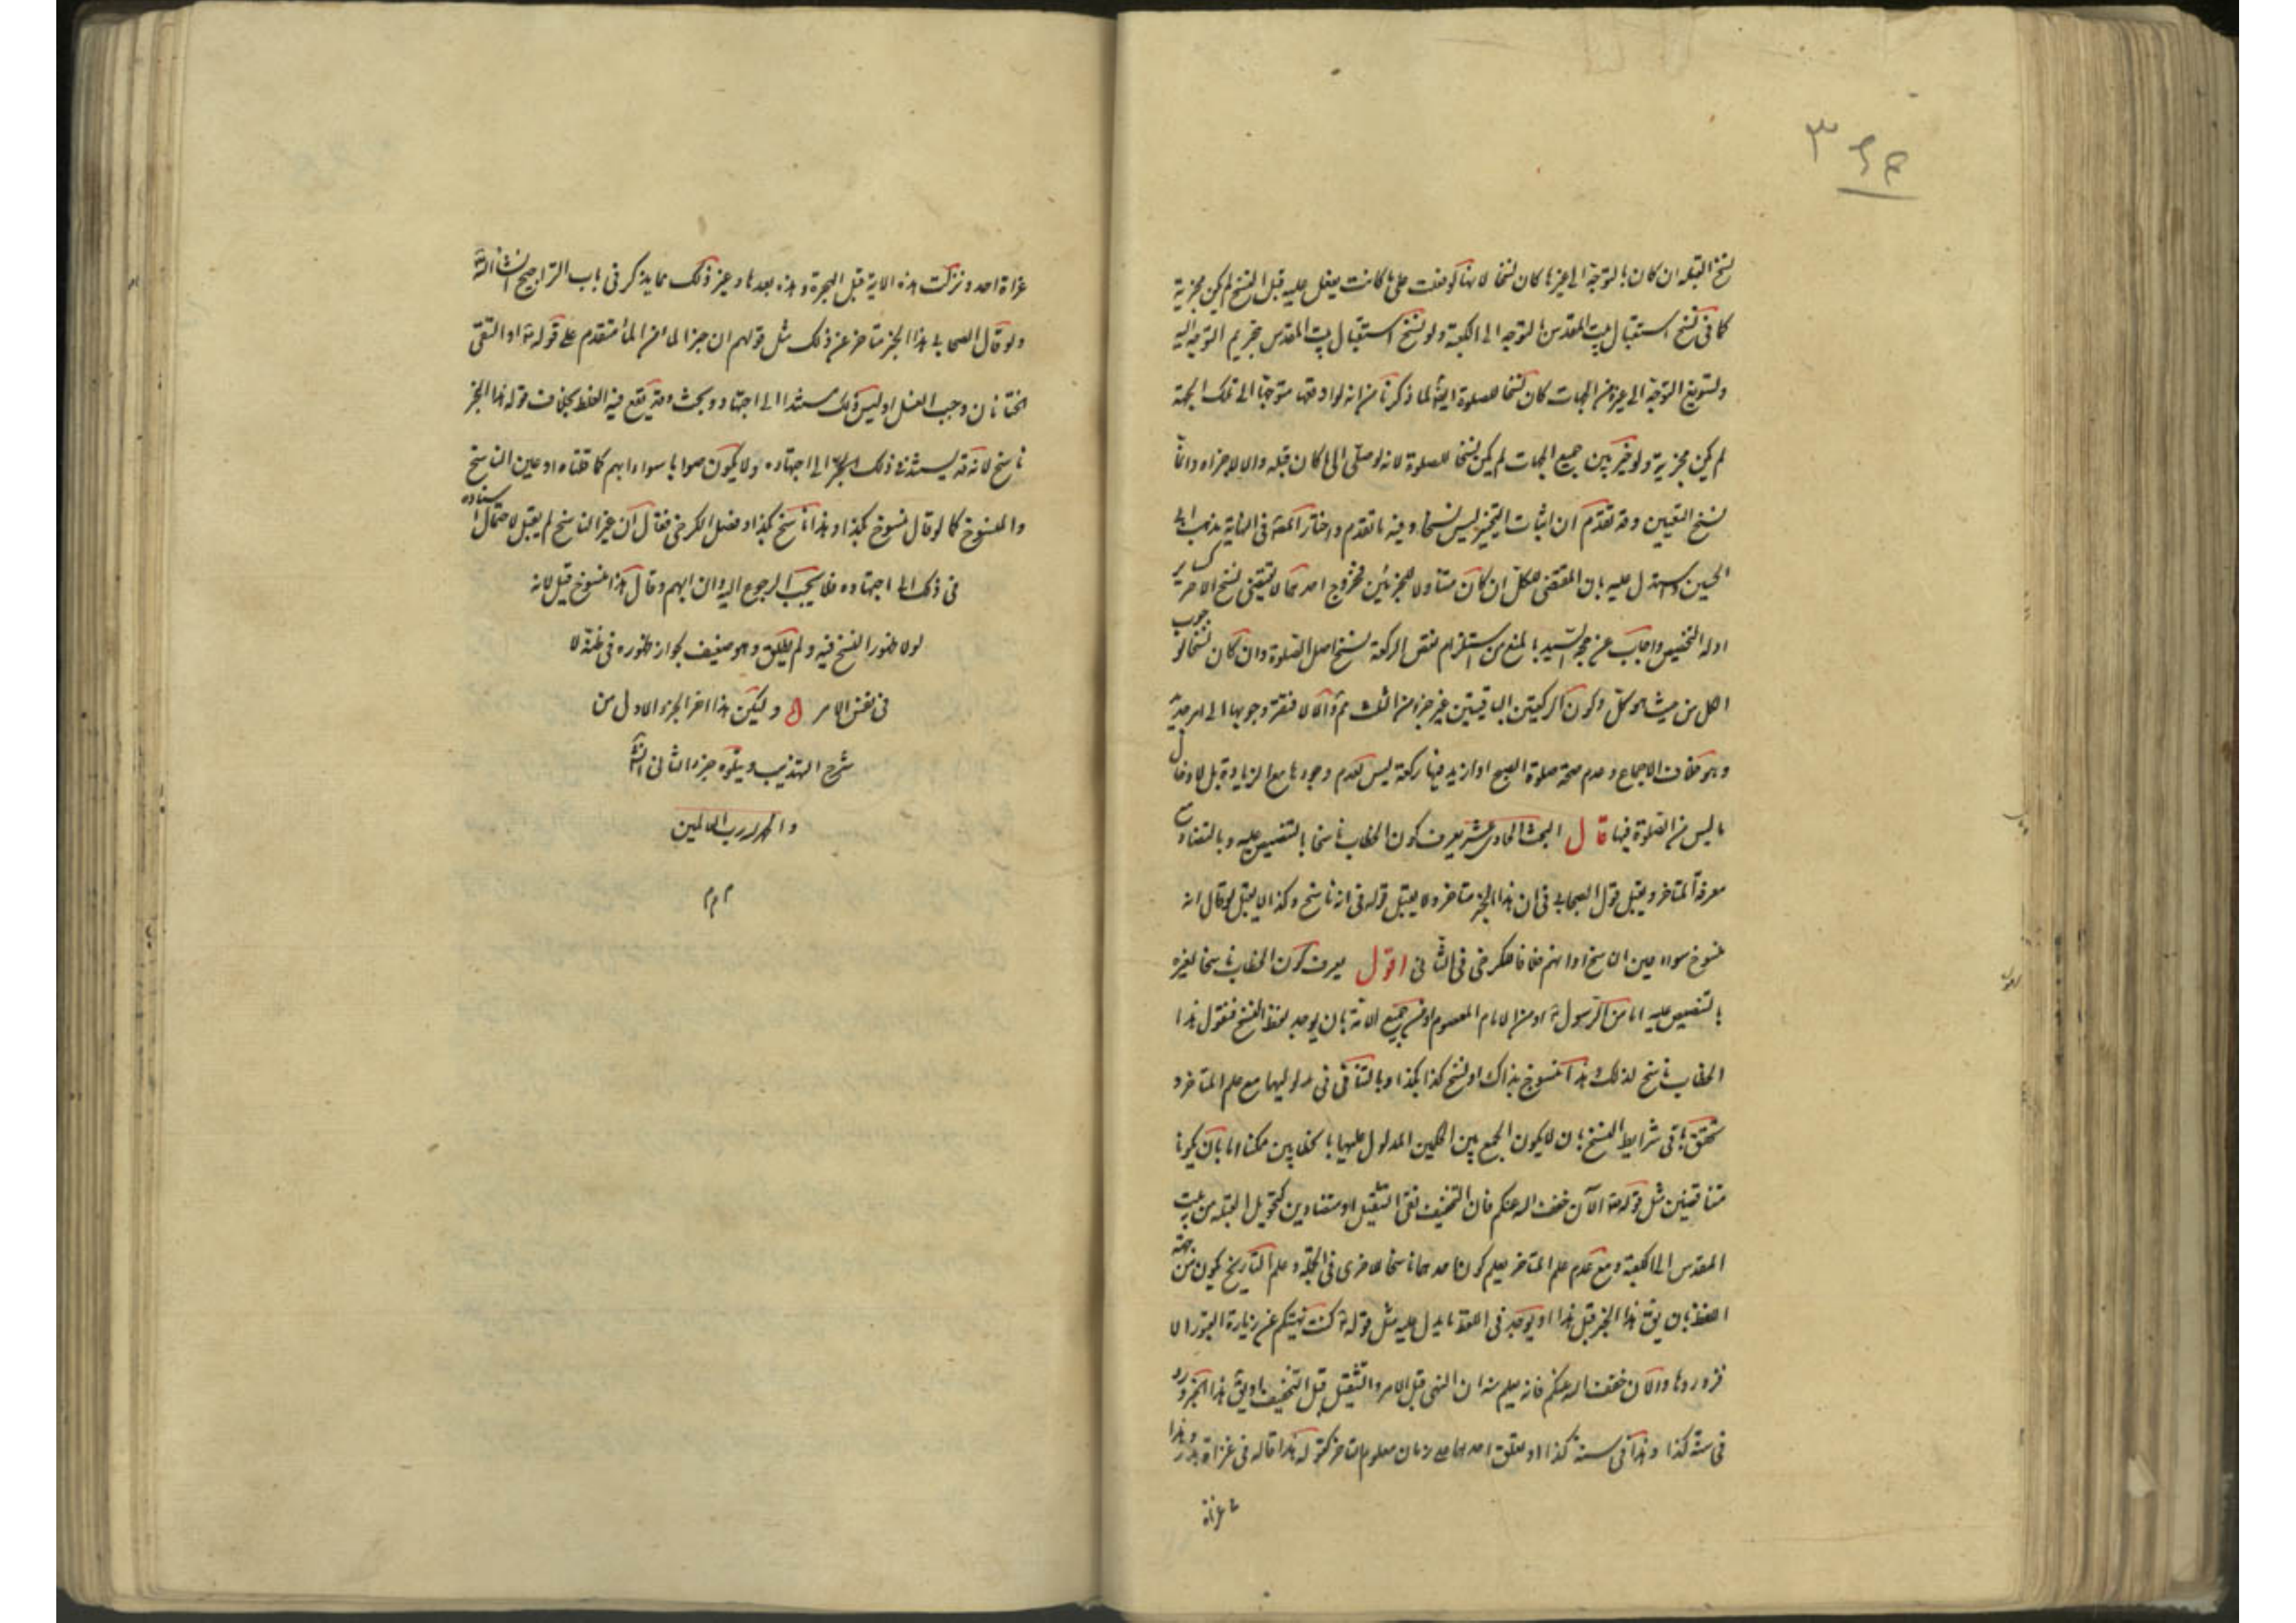 نسخ القبلة ان كان بالتوجه الى غيرها كان نسخا لانها لو فعلت على ما كانت يفعل عليه قبل النسخ لم يكن مجزية
كما فى نسخ استقبال بيت المقدس بالتوجه الى الكعبة ولو نسخ استقبال بيت المقدس بتحريم التوجه اليه
وتسويغ التوجه الى غيره من الجهات كان نسخا للصلوة ايضا لما ذكرنا من انه لو اوقعها متوجها الى تلك الجهة
لم يكن مجزية ولو خير بين جميع الجهات لم يكن نسخا للصلوة لانه لو صلى الى ما كان قبله والا للاجزاه وانما
نسخ التعيين وقد تقدم ان اثبات التخيير ليس نسخا وفيه ما تقدم واختار المص فى النهاية مذهب ابى
الحسين واستدل عليه بان المقتضى للكل ان كان متناولا للجزئين فخروج احدهما لا يقتضى نسخ الاخر كساير
ادلة التخصيص واجاب عن حجة السيد بالمنع من استلزام نقص الركعة نسخ اصل الصلوة وان كان نسخا لوجوب
الكل من حيث هو كل وكون الركعتين الباقيتين غير جزء من الثلث ثم والا لافتقر وجوبها الى امر جديد
وهو خلاف الاجماع وعدم صحة صلوة الصبح اذا زيد فيها ركعة ليس لعدم وجودها مع الزيادة بل لادخال
ما ليس من الصلوة فيها قال البحث الحادى عشر يعرف كون الخطاب ناسخا بالتنصيص عليه وبالتضاد مع
معرفة المتاخر ويقبل قول الصحابى فى ان هذا الخبر متاخر ولا يقبل قوله فى انه ناسخ وكذا لا يقبل لو قال انه
منسوخ سواء عين الناسخ او ابهم خلافا للكرخى فى الثانى اقول يعرف كون الخطاب ناسخا لغيره
بالتنصيص عليه اما من الرسول او من الامام المعصوم او من جميع الامة بان يوجد لفظ النسخ فنقول هذا
الخطاب ناسخ لذلك وهذا منسوخ بذاك او نسخ كذا بكذا وبالتنافى فى مدلوليهما مع علم المتاخر و
تحقق باقى شرايط النسخ بان لا يكون الجمع بين الحكمين المدلول عليهما بالخطابين ممكنا اما بان يكونا
متناقضين مثل قوله تع الآن خفف الله عنكم فان التخفيف نفى التثقيل او متضادين كتحويل القبلة من بيت
المقدس الى الكعبة ومع عدم علم المتاخر يعلم كون احدهما ناسخا للاخرى فى الجملة وعلم التاريخ يكون من جهة
اللفظ بان يق هذا الخبر قبل هذا او يوجد فى اللفظ ما يدل عليه مثل قوله كنت نهيتكم عن زيارة القبور الا
فزوروها والآن خفف الله عنكم فانه يعلم منه ان النهى قبل الامر والتثقيل قبل التخفيف او يق هذا الخبر ورد
فى سنة كذا وهذا فى سنة كذا او يعلق احدهما على زمان معلوم متاخر كقوله هذا قاله فى غزاة بدر وهذا
غزاة
غزاة احد ونزلت هذه الآية قبل الهجرة وهذه بعدها وغير ذلك مما يذكر فى باب التراجيح انشاء الله
ولو قال الصحابى هذا الخبر متاخر عن ذلك مثل قولهم ان خبر الماء من الماء متقدم على قوله اذا التقى
الختانان وجب الغسل اذ ليس ذلك مستندا الى اجتهاد وبحث وقد يقع فيه الغلط بخلاف قوله هذا الخبر
ناسخ لانه قد يستند فى ذلك الى اجتهاده ولا يكون صوابا سواء ابهم كما قلناه او عين الناسخ
والمنسوخ كما لو قال منسوخ بكذا وهذا ناسخ بكذا وفصل الكرخى فقال ان عين الناسخ لم يقبل لاحتمال استناده
فى ذلك الى اجتهاده فلا يجب الرجوع اليه وان ابهم وقال هذا منسوخ قبل لانه
لولا ظهور النسخ فيه ولم يطلق وهو ضعيف لجواز ظهوره فى ظنه لا
فى نفس الامر وليكن هذا اخر الجزء الاول من
شرح التهذيب ويتلوه جزء الثانى انشاء الله
والحمد لله رب العالمين
م م م